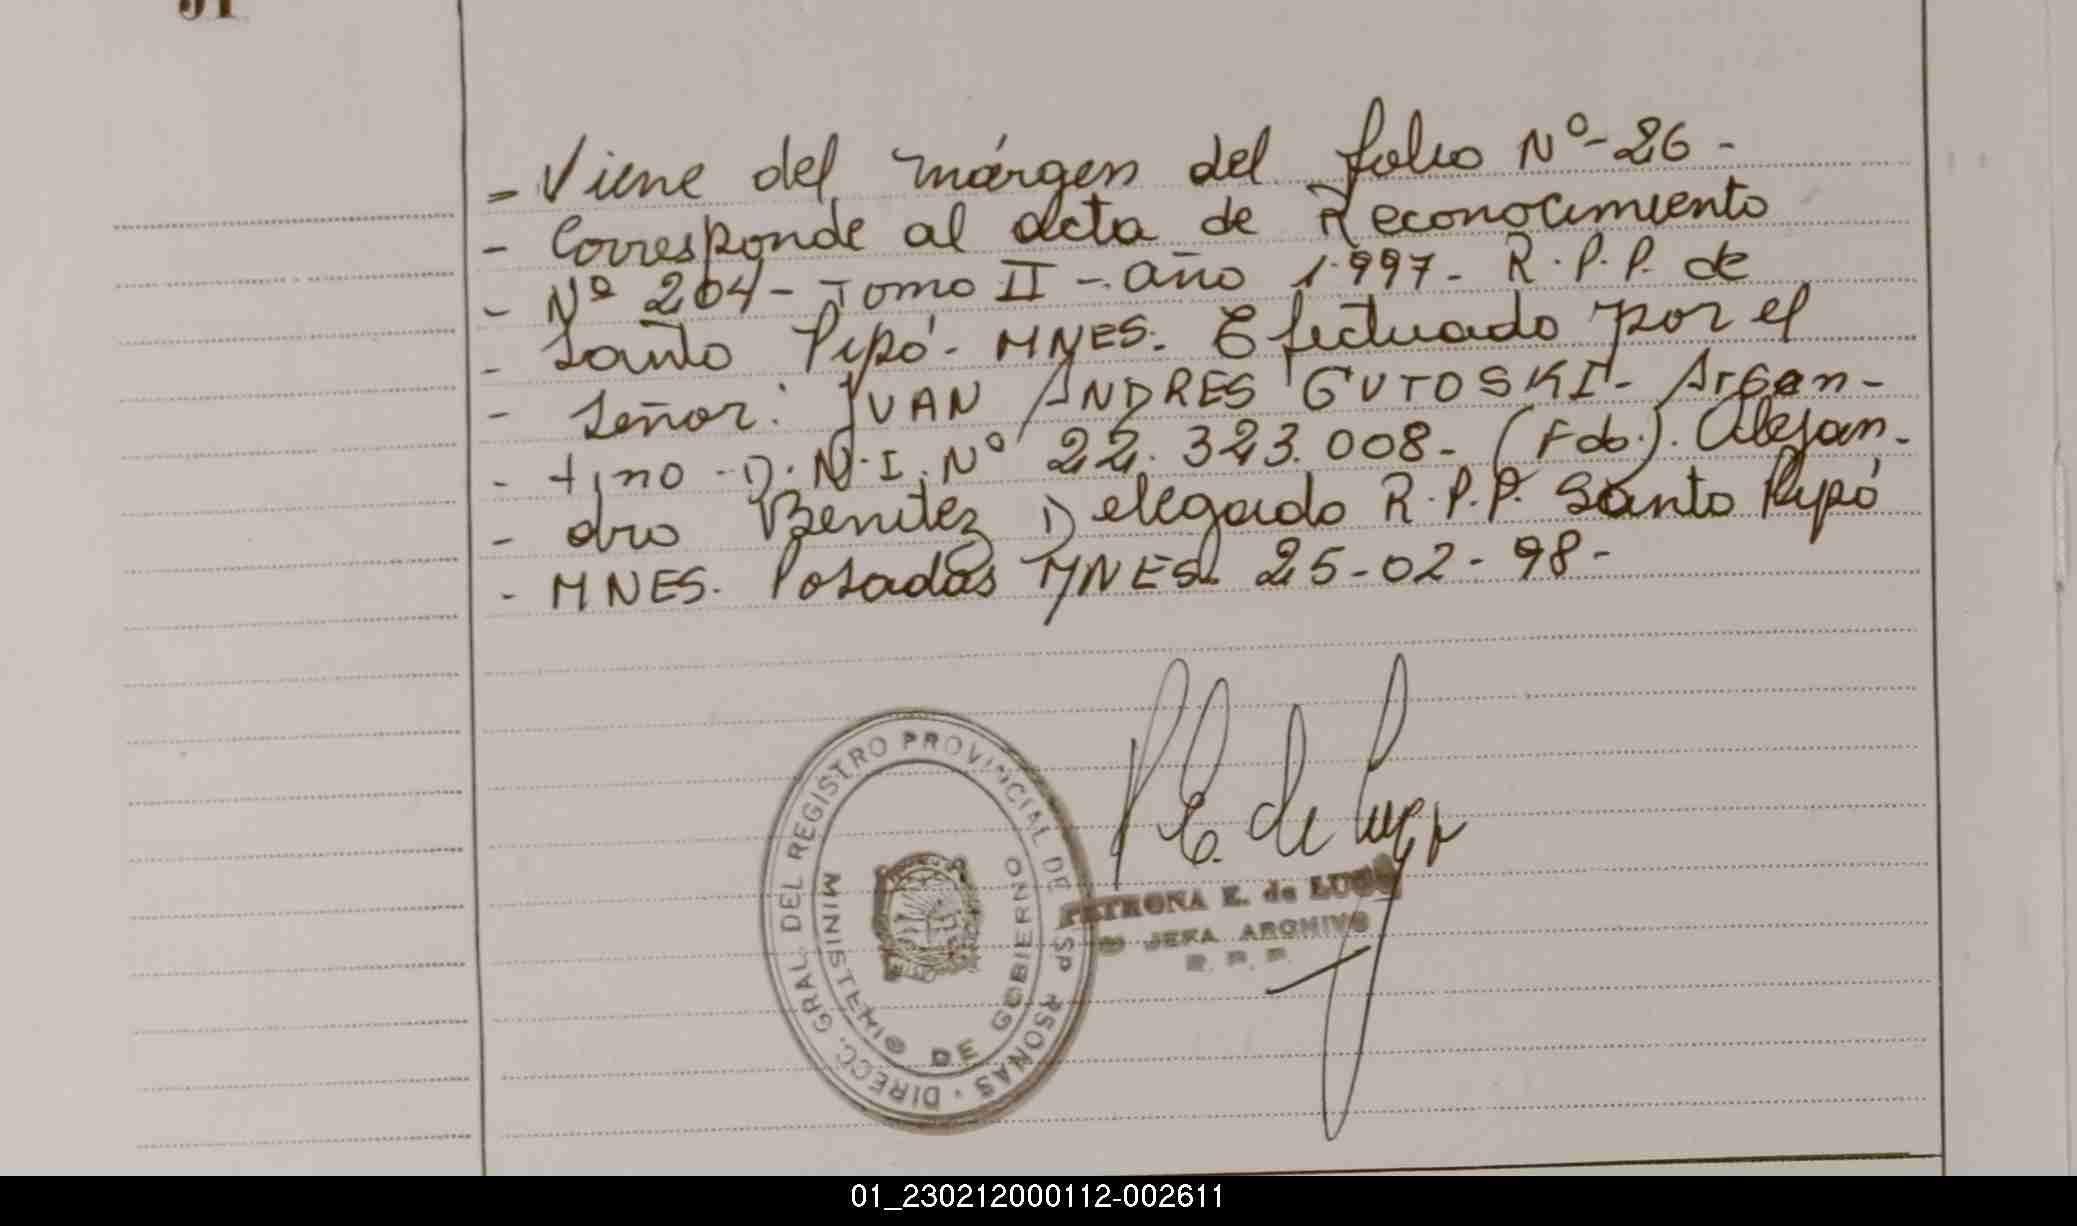 - Viene del márgen del folio Nº-26-
- Corresponde al acta de Reconocimiento
- Nº 204- Tomo II - año 1.997- R.P.P. de
- Santo Pipó- MNES. Efectuado por el
- Señor: JUAN ANDRES GUTOSKI- Argen-
- tino - D.N.I. Nº 22.323.008- (Fdo.). Alejan-
- dro Benitez Delegado R.P.P. Santo Pipó
- MNES. Posadas MNES. 25-02-98-
DIRECC. GRAL DEL REGISTRO PROVINCIAL DE P RSONAS
MINISTERIO DE GOBIERNO
P E. de Lugo
PETRONA E. de LUGO
JEFA ARCHIVO
R. P. P.
01_230212000112-002611